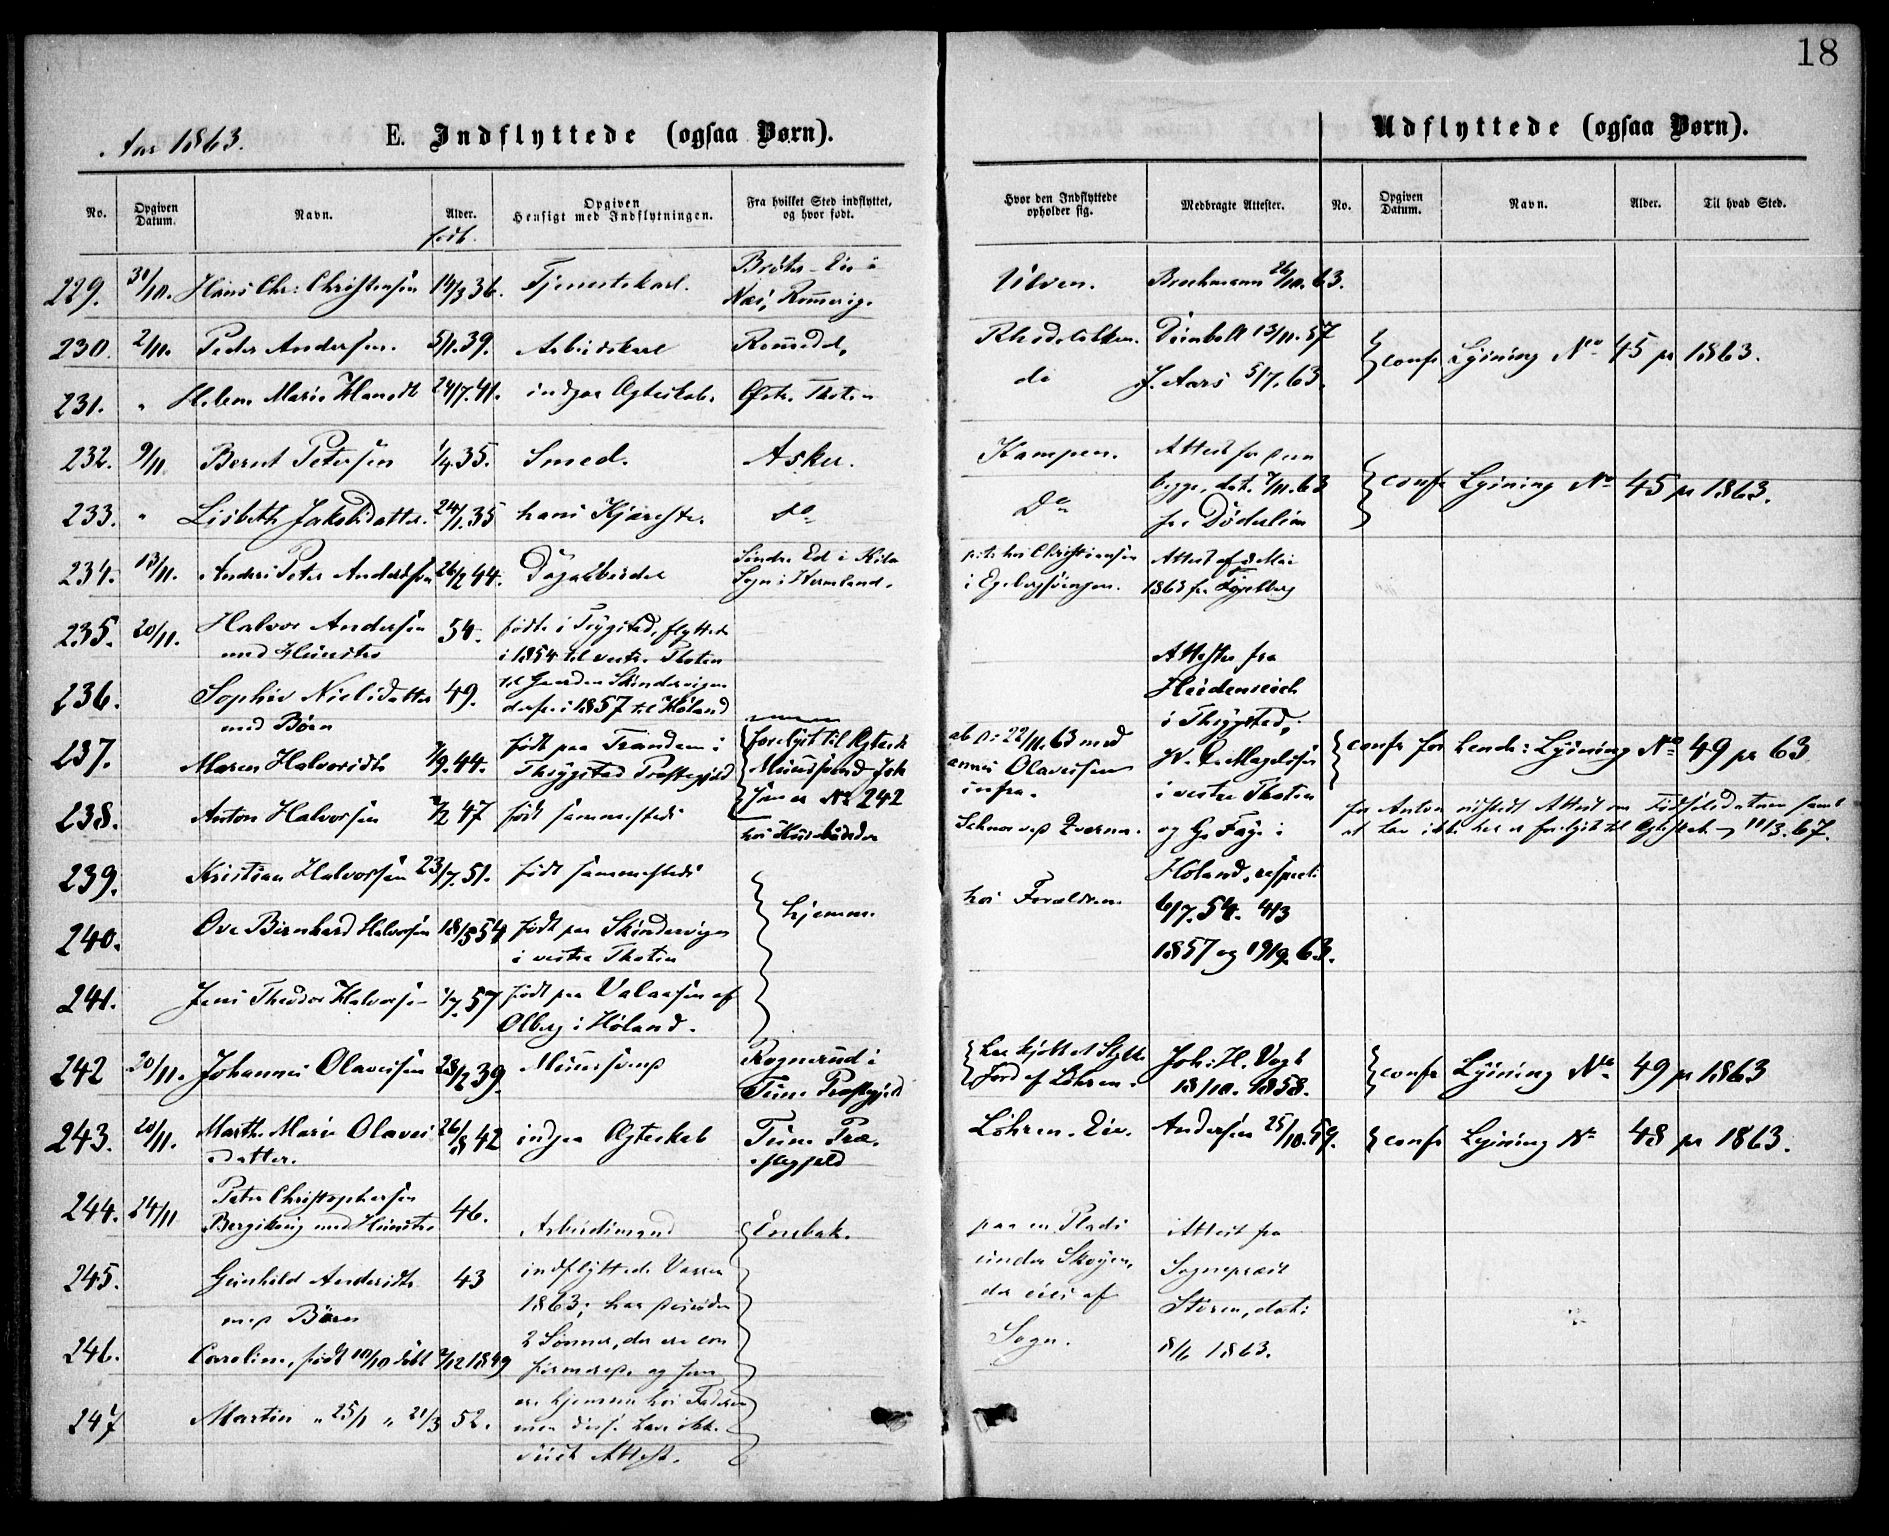 18
Aar 1863.
E. Indflyttede (ogsaa Børn).
Udflyttede (ogsaa Børn).
No. Opgiven Datum. Navn. Alder. Opgiven Hensigt med Indflytningen. Fra hvilket Sted indflyttet, og hvor født. Hvor den Indflyttede opholder sig. Medbragte Attester. No. Opgiven Datum. Navn. Alder. Til hvad Sted.
født.
229. 31/10. Hans Chr: Christensen 14/3 36. Tjenestekarl. Næs, Romerig. Brochmann 26/10. 63.
230. 2/11. Peder Andersen. 5/1. 39. Arbeidskarl 13/11. 57
confr Lysning No 45 pr 1863.
231. " Helene Marie 24/7. 41. indgaa Ægteskab. Østr. Thoten do J. Aars 5/7. 63.
232. 9/11 Bernt Petersen 1/4 35. Smed. Asker. Kampen. Attest for dem
233. " Lisbeth Jakobsdatter. 24/1. 35 hans Kjæreste. do Do begge, dat. 7/11. 63
fr: Döderlein
confr Lysning No 45 pr 1863.
234. 13/11. Anders Peter Andersen 26/2 44. Dagarbeider Søndre Ed i Kila
Sogn i Vermland. hos Christiansen
i Egebergsvingen. Attest af Mai
1863 fr:
235. 20/11. Halvor Andersen 54. født i Trygstad, flyttede
med Hustru i 1854 til vestre Thoten
236. Sophie Nielsdatter 49. til Gaarden Skindervigen
med Børn derfra i 1857 til Høland
Attester fra
Heidenreich
i Thrygstad,
237. Maren Halvorsdtr 44. født paa Trandem i
Thrygstad Præstegjeld forlovet til Ægtesk
Muursvend Joh
nr No 242 22/11. 63 med
annes Olavesen
infra.
i vestre Thoten
confr for hende: Lysning No 49 pr 63
238. Anton Halvorsen 47 født sammesteds og Gr Faye i
for Anton udstedt Attest om Fødselsdatum samt
at han ikke her er forlovet til Ægtesk. 11/3. 67.
239. Kristian Halvorsen 23/7. 51. født sammesteds
hjemme. hos Forældrene
Høland, respect:
6/7. 54. 4/3
1857 og 19/9. 63.
240. Ove Bernhard Halvorsen 18/5 54 født paa Skindervigen
i vestre Thoten
241. Jens Theodor Halvorsen 1/7. 57 født paa Valaasen af
Olberg i Høland.
242 20/11. Johannes Olavesen 28/2 39. Muursvend Rognerud i
Tune Præstegjeld har kjøbt et Stykke
Jord af Løhren. Joh: H. Vogt
13/10. 1858. confr Lysning No 49 pr 1863
243. 20/11. Marthe Marie Olaves
datter. 26/8 42 indgaa Ægteskab Tune Præ-
stegjeld Løhren. Eie. Andersen 25/10. 59. confr Lysning No 48 pr 1863.
244. 24/11 Peter Christophersen
med Hustru 46. Arbeidsmand Enebak. paa en Plads Attest fra
245. Gunhild Andersdtr 43 indflyttede Vaaren
med Børn 1863; har desuden
under Skøyen,
der eies af
Sogn. Sognepræst
Steen, dat:
8/6 1863.
246. Caroline, født 10/10 døbt 2/12 1849 2 Sønner, der ere con
firmerede og som
247 Martin " 25/1 " 21/3 52. ere hjemme hos Faderen
men disse have ikke
viist Attest.